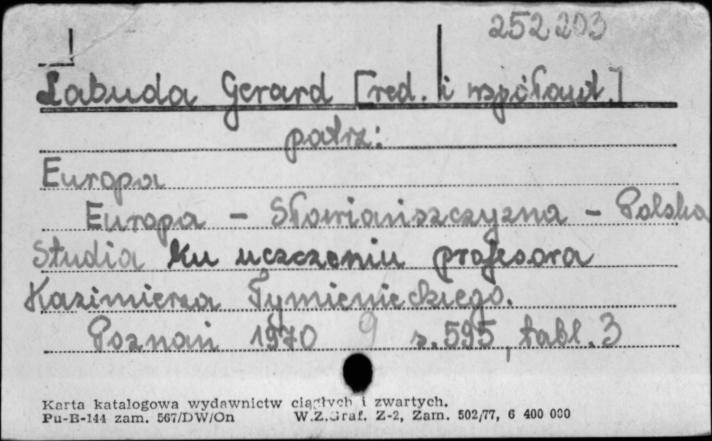 252203
Labuda Gerard [red. i współaut.]
patrz:
Europa
Europa – Słowiańszczyzna – Polska
Studia ku uczczeniu profesora
Kazimierza Tymienieckiego.
Poznań 1970 9 s. 595, tabl. 3
Karta katalogowa wydawnictw ciągłych i zwartych.
Pu-B-144 zam. 567/DW/On W.Z.Graf. Z-2, Zam. 502/77, 6 400 000